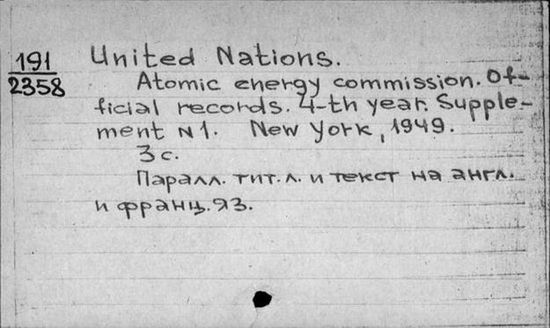 191
2358
United Nations.
Atomic energy commission. Of-
ficial records. 4-th year. Supple-
ment N1. New York, 1949.
3 с.
Паралл. тит. л. и текст на англ.
и франц. яз.